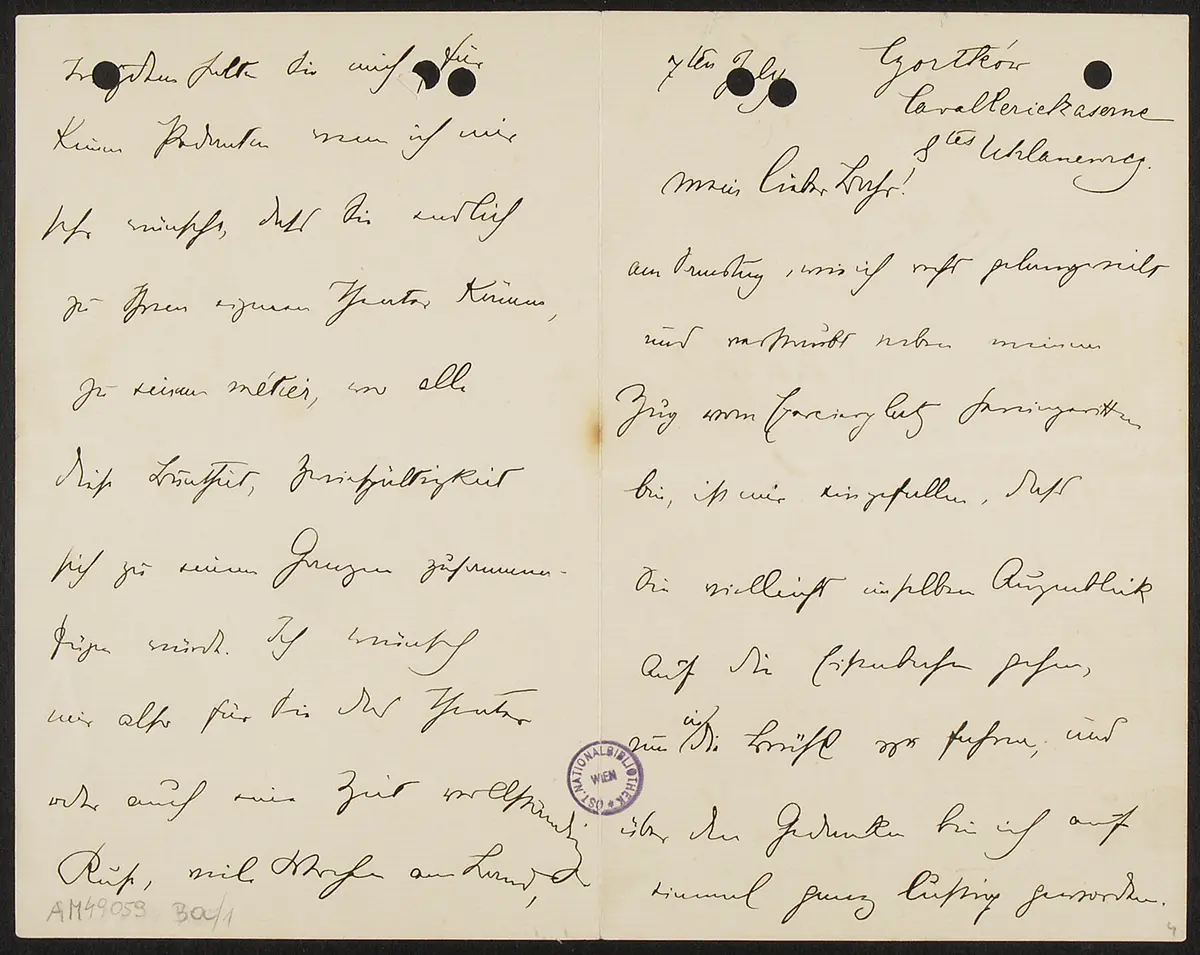 Trotzdem halten Sie mich für
keinen Pedanten wenn ich mir
sehr wünsche, dass Sie endlich
zu Ihrem eigenen Theater kommen,
zu einem métier, wo alle
diese Buntheit,
sich zu einem Ganzen zusammen-
fügen würde. Ich wünsche
mir also für Sie das Theater
oder auch eine Zeit vollständig
Ruhe, viele Wochen am Land,
AM49059 Ba/1
7ten July Czortków
Cavalleriekaserne
8tes Uhlanenreg.
Mein lieber Bahr!
am Dienstag, wie ich recht gelangweilt
und verstaubt neben meinem
Zug vom Exercierplatz hereingeritten
bin, ist mir eingefallen, dass
Sie vielleicht im selben Augenblick
auf die Eisenbahn gehen,
um in die Brühl zu fahren, und
über den Gedanken bin ich auf
einmal ganz lustig geworden.
ÖST. NATIONALBIBLIOTHEK WIEN